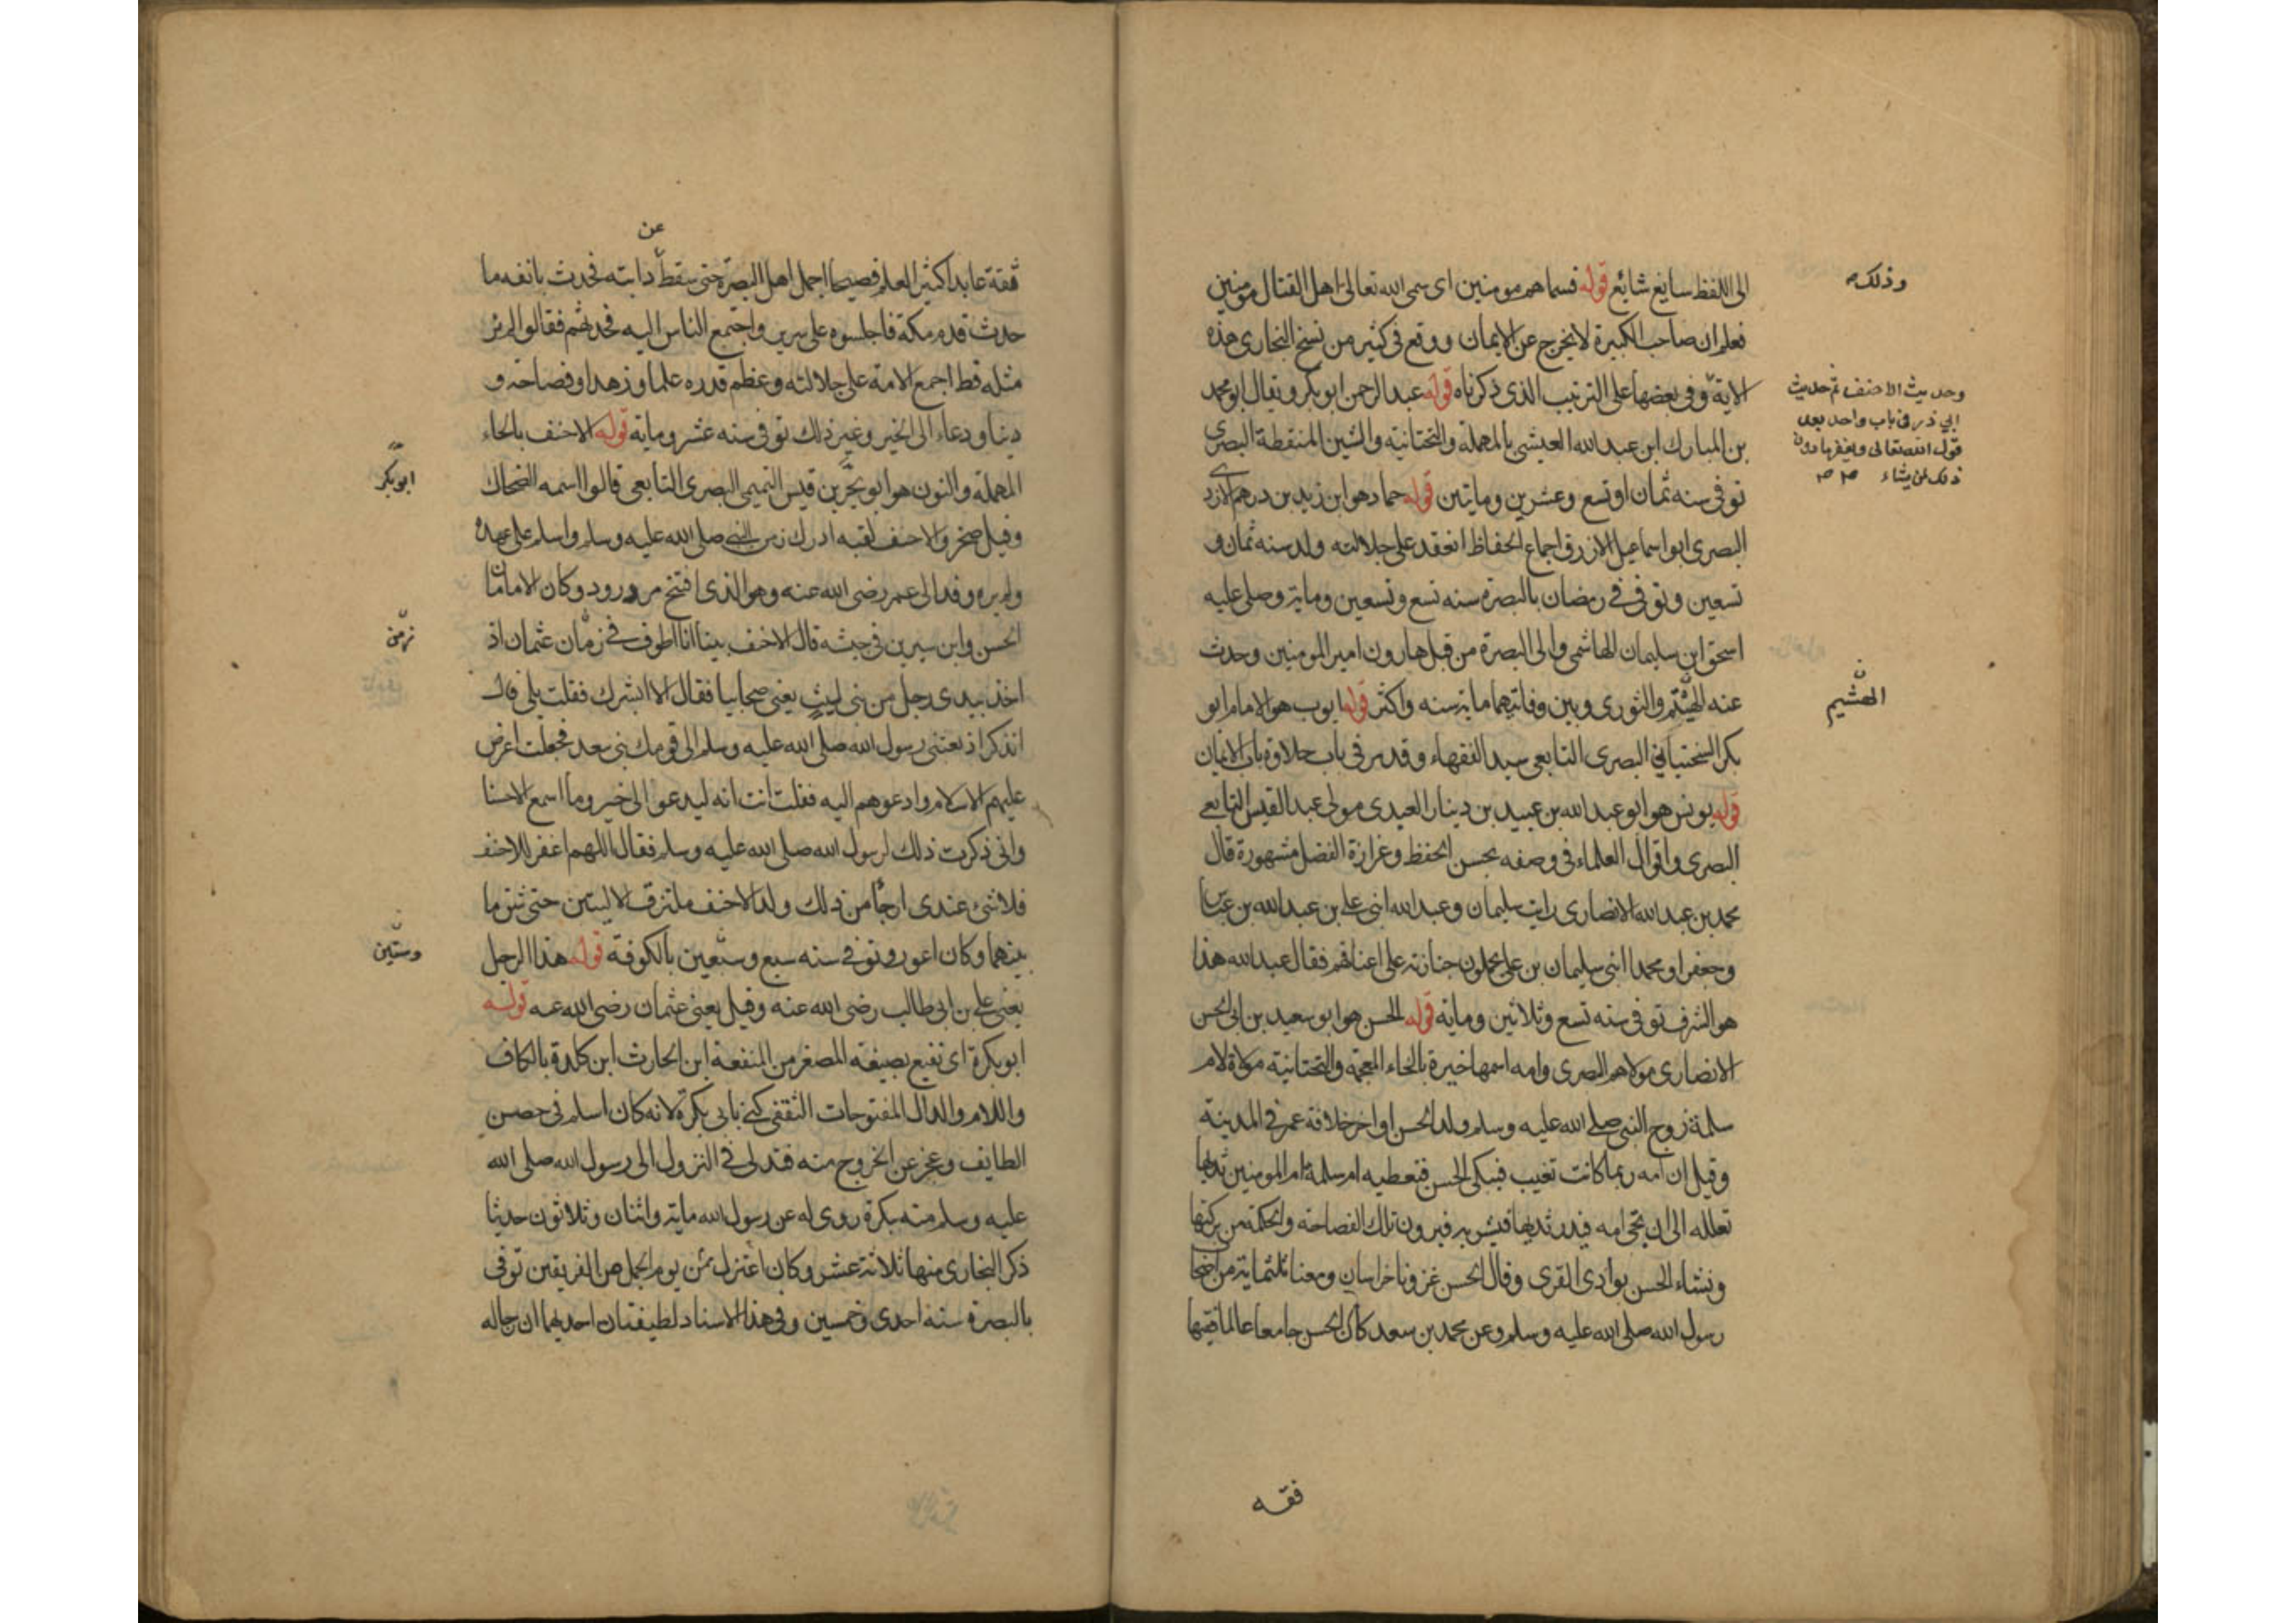 الى اللفظ سايغ شايع قوله فسماهم مومنين اى سمى الله تعالى اهل القتال مومنين
وذلك
فعلم ان صاحب الكبيرة لا يخرج عن الايمان ووقع فى كثير من نسخ البخارى هذه
الاية وفى بعضها على الترتيب الذى ذكرناه قوله عبد الرحمن ابو بكر ويقال ابو محمد
وحديث الاحنف ثم حديث
ابي ذر فى باب واحد بعد
قول الله تعالى ويغفر ما دون
ذلك لمن يشاء
بن المبارك ابن عبد الله العيشى بالمهملة والتحتانية والشين المنقطة البصرى
توفى سنه ثمان او تسع وعشرين وماتين قوله حماد هو ابن زيد بن درهم الازدى
البصرى ابو اسماعيل الازرق اجماع الحفاظ انعقد على جلالته ولد سنه ثمان و
تسعين وتوفى فى رمضان بالبصرة سنه تسع وتسعين وماية وصلى عليه
اسحق ابن سليمان الهاشمى والى البصرة من قبل هارون امير المومنين وحدث
عنه الهيثم والثورى وبين وفاتيهما ماية سنه واكثر قوله ايوب هو الامام ابو
الهشيم
بكر السختياني البصرى التابعى سيد الفقهاء وقد مر فى باب حلاوة باب الايمان
قوله يونس هو ابو عبد الله بن عبيد بن دينار العبدى مولى عبد القيس التابعى
البصرى واقوال العلماء فى وصفه بحسن الحفظ وغزارة الفضل مشهورة قال
محمد بن عبد الله الانصارى رايت سليمان وعبد الله ابنى على بن عبد الله بن عباس
وجعفرا ومحمدا ابنى سليمان بن على يحملون جنازته على اعناقهم فقال عبد الله هذا
هو الشرف توفى سنه تسع وثلاثين وماية قوله الحسن هو ابو سعيد بن ابى الحسن
الانصارى مولاهم البصرى وامه اسمها خيرة بالخاء المعجمة والتحتانية مولاة لام
سلمة زوج النبى صلى الله عليه وسلم ولد الحسن اواخر خلافة عمر فى المدينة
وقيل ان امه ربما كانت تغيب فيبكى الحسن فتعطيه ام سلمة ام المومنين ثديها
تعلله الى ان تجى امه فيدر ثديها فيشربه فيرون تلك الفصاحة والحكمة من بركتها
ونشاء الحسن بوادى القرى وقال الحسن غزونا خراسان ومعنا ثلثماية من اصحاب
رسول الله صلى الله عليه وسلم وعن محمد بن سعد كان الحسن جامعا عالما فقيها
فقه
عن
ثقة عابدا كثير العلم فصيحا اجمل اهل البصرة حتى سقط دابته فحدث بانفه ما
حدث قدم مكة فاجلسوه على سرير واجتمع الناس اليه فحدثهم فقالوا لم نر
مثله قط اجمع الامة على جلالته وعظم قدره علما وزهدا وفصاحه و
دينا ودعاء الى الخير وغير ذلك توفى سنه عشر وماية قوله الاحنف بالحاء
المهملة والنون هو ابو بحر بن قيس التميمى البصرى التابعى قالوا اسمه الضحاك
ابو بكر
وقيل صخر والاحنف لقبه ادرك زمن النبى صلى الله عليه وسلم واسلم على عهده
ولم يره وفد الى عمر رضى الله عنه وهو الذى افتتح مرورود وكان الامامان
الحسن وابن سيرين فى جيشه قال الاحنف بينا انا اطوف فى زمان عثمان اذ
زمن
اخذ بيدى رجل من بنى ليث يعنى صحابيا فقال الا ابشرك فقلت بلى قال
اتذكر اذ بعثنى رسول الله صلى الله عليه وسلم الى قومك بنى سعد فجعلت اعرض
عليهم الاسلام وادعوهم اليه فقلت انت انه ليدعو الى خير وما اسمع الا حسنا
وانى ذكرت ذلك لرسول الله صلى الله عليه وسلم فقال اللهم اغفر للاحنف
فلا شئ عندى ارجا من ذلك ولد الاحنف ملتزق الاليتين حتى شق ما
بينهما وكان اعور وتوفى سنه سبع وستعين بالكوفة قوله هذا الرجل
وستين
يعنى على بن ابى طالب رضى الله عنه وقيل يعنى عثمان رضى الله عنه قوله
ابو بكرة اى نفيع بصيغه المصغر من المنفعة ابن الحارث ابن كلدة بالكاف
واللام والدال المفتوحات الثقفى كنى بابى بكرة لانه كان اسلم فى حصن
الطايف وعجز عن الخروج منه فتدلى فى النزول الى رسول الله صلى الله
عليه وسلم منه ببكرة روى له عن رسول الله ماية واثنان وثلاثون حديثا
ذكر البخارى منها ثلاثة عشر وكان اعتزل يوم الجمل من الفريقين توفى
بالبصرة سنة احدى وخمسين وفى هذا الاسناد لطيفتان احديهما ان رجاله